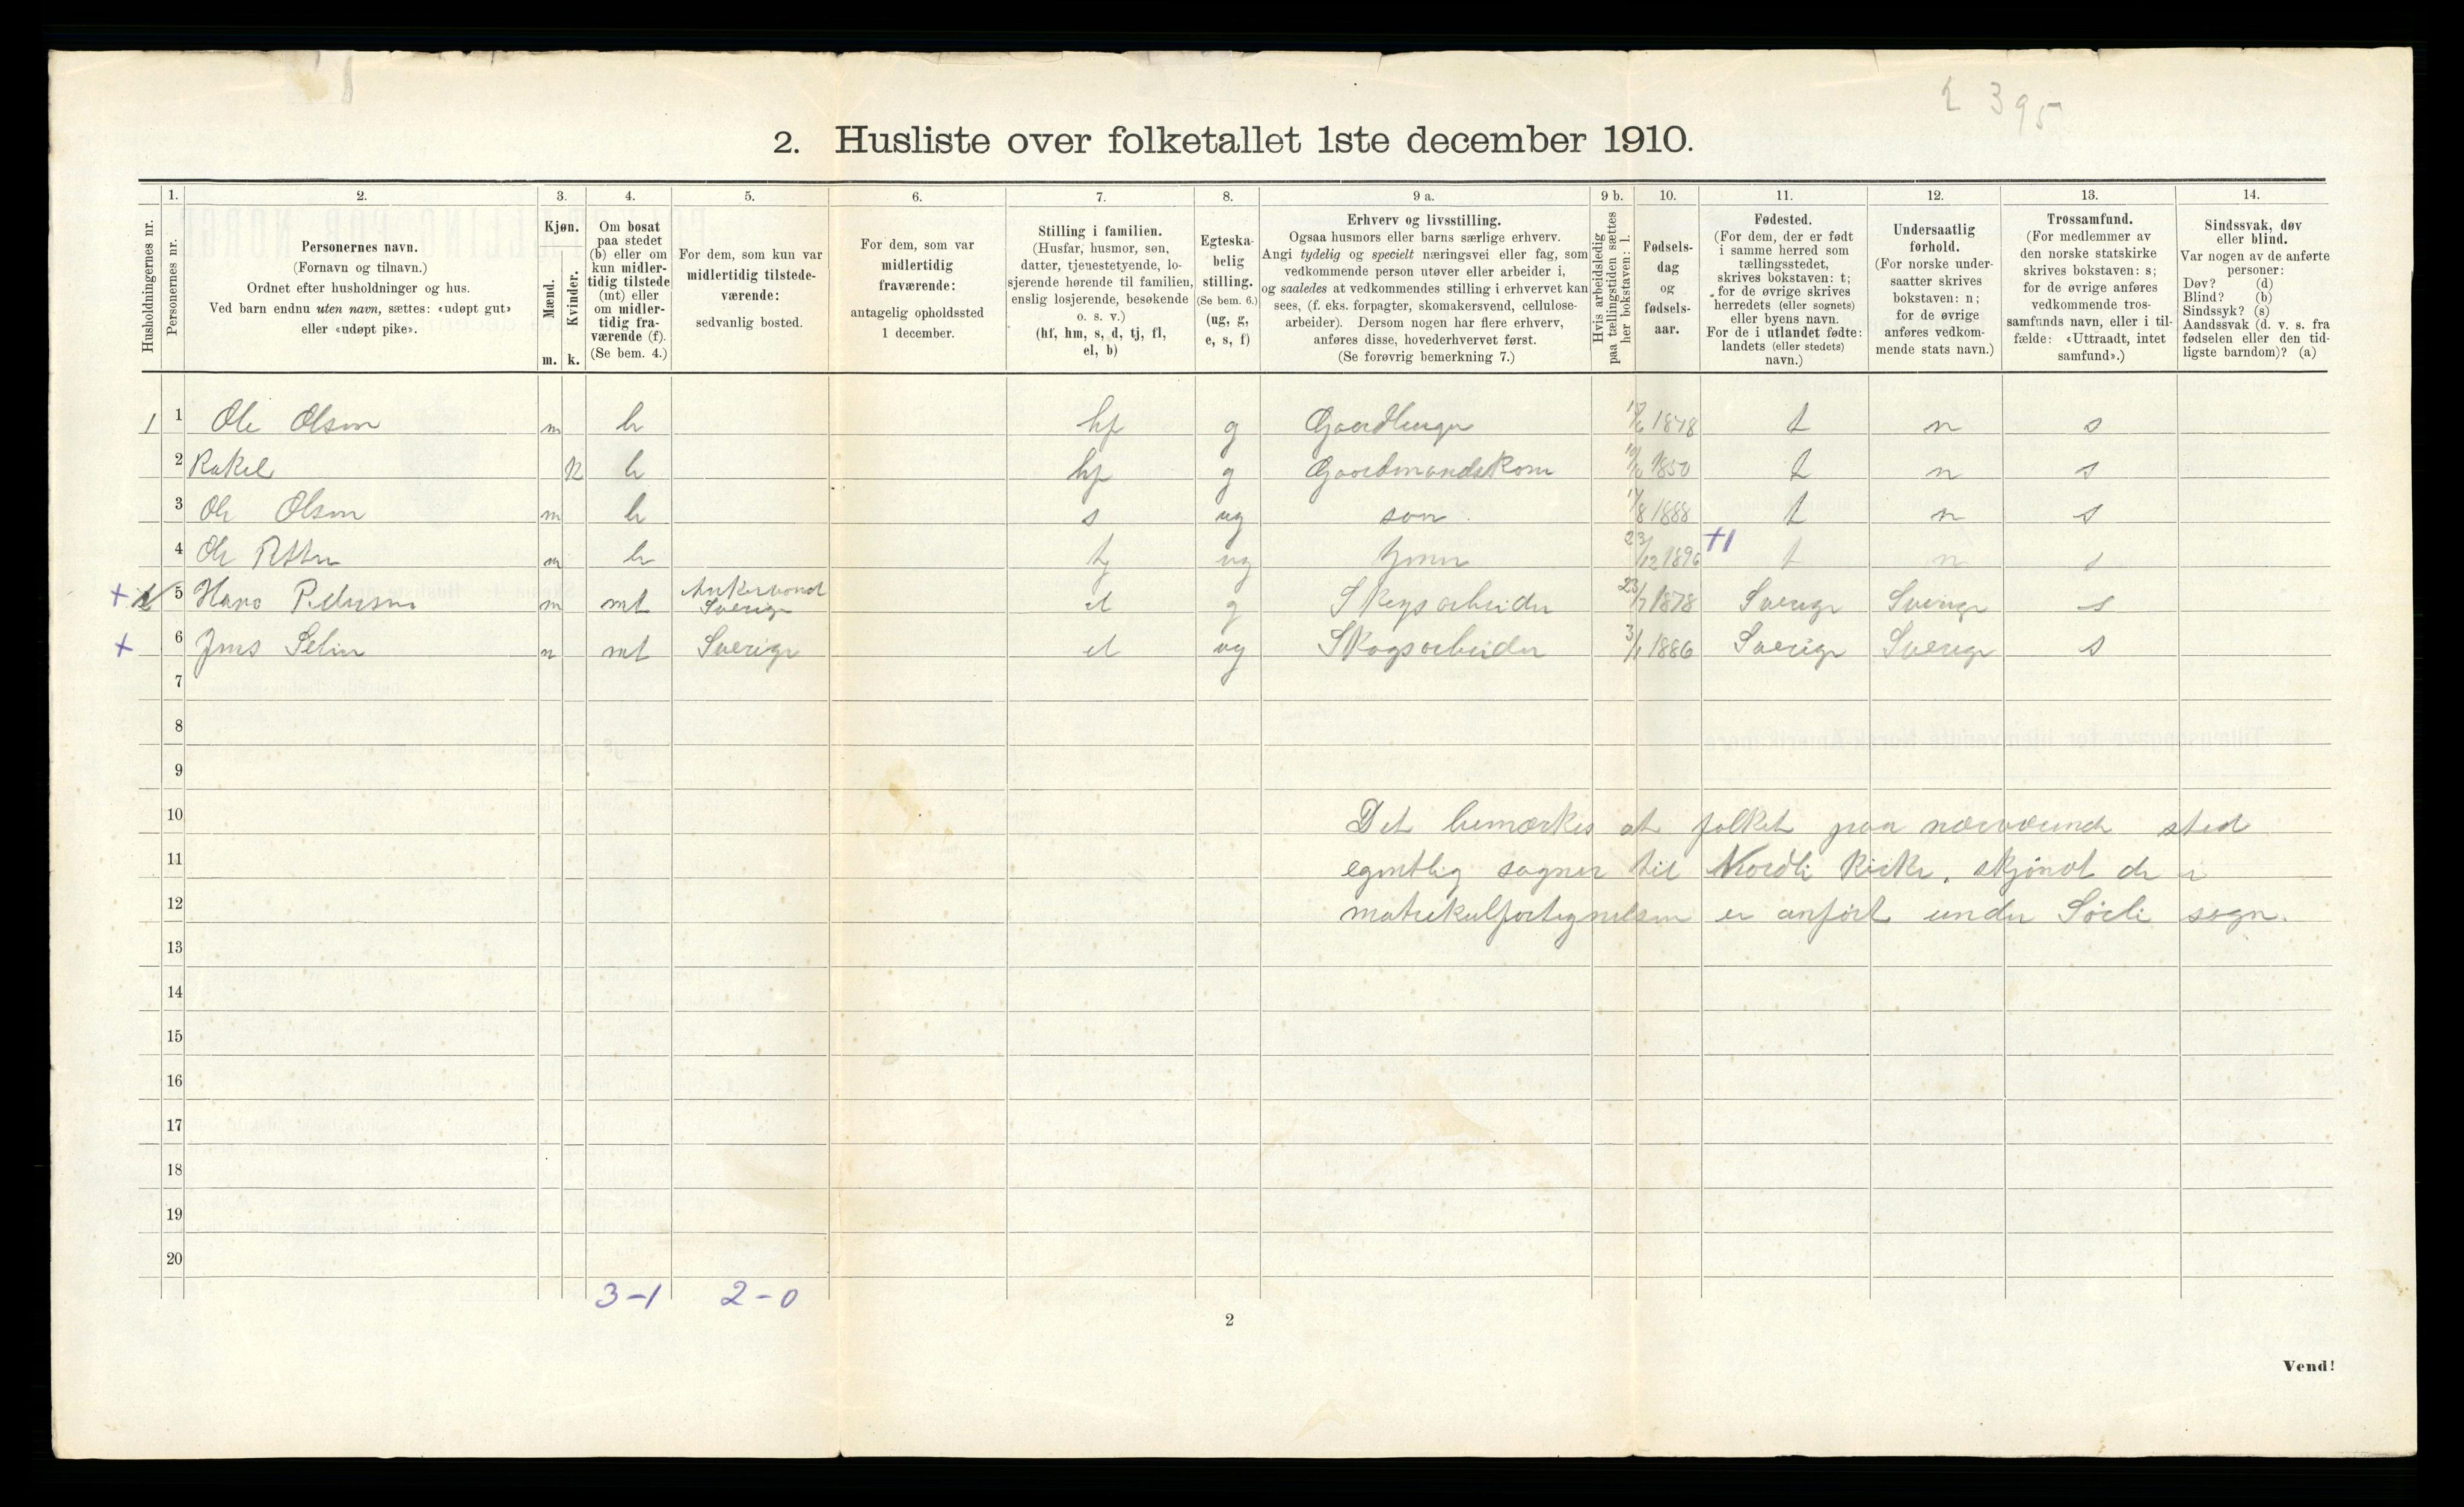 395
2. Husliste over folketallet 1ste december 1910.
1. 2. 3. 4. 5. 6. 7. 8. 9 a. 9 b. 10. 11. 12. 13. 14.
Husholdningernes nr.
Personernes nr.
Personernes navn.
(Fornavn og tilnavn.)
Ordnet efter husholdninger og hus.
Ved barn endnu uten navn, sættes: «udøpt gut»
eller «udøpt pike».
Kjøn.
Mænd.
m.
Kvinder.
k.
Om bosat
paa stedet
(b) eller om
kun midler-
tidig tilstede
(mt) eller
om midler-
tidig fra-
værende (f).
(Se bem. 4.)
For dem, som kun var
midlertidig tilstede-
værende:
sedvanlig bosted.
For dem, som var
midlertidig
fraværende:
antagelig opholdssted
1 december.
Stilling i familien.
(Husfar, husmor, søn,
datter, tjenestetyende, lo-
sjerende hørende til familien,
enslig losjerende, besøkende
o. s. v.)
(hf, hm, s, d, tj, fl,
el, b)
Egteska-
belig
stilling.
(Se bem. 6.)
(ug, g,
e, s, f)
Erhverv og livsstilling.
Ogsaa husmors eller barns særlige erhverv.
Angi tydelig og specielt næringsvei eller fag, som
vedkommende person utøver eller arbeider i,
og saaledes at vedkommendes stilling i erhvervet kan
sees, (f. eks. forpagter, skomakersvend, cellulose-
arbeider). Dersom nogen har flere erhverv,
anføres disse, hovederhvervet først.
(Se forøvrig bemerkning 7.)
Hvis arbeidsledig
paa tællingstiden sættes
her bokstaven: l.
Fødsels-
dag
og
fødsels-
aar.
Fødested.
(For dem, der er født
i samme herred som
tællingsstedet,
skrives bokstaven: t;
for de øvrige skrives
herredets (eller sognets)
eller byens navn.
For de i utlandet fødte:
landets (eller stedets)
navn.)
Undersaatlig
forhold.
(For norske under-
saatter skrives
bokstaven: n;
for de øvrige
anføres vedkom-
mende stats navn.)
Trossamfund.
(For medlemmer av
den norske statskirke
skrives bokstaven: s;
for de øvrige anføres
vedkommende tros-
samfunds navn, eller i til-
fælde: «Uttraadt, intet
samfund».)
Sindssvak, døv
eller blind.
Var nogen av de anførte
personer:
Døv? (d)
Blind? (b)
Sindssyk? (s)
Aandssvak (d. v. s. fra
fødselen eller den tid-
ligste barndom)? (a)
1 1 Ole Olsen m b hf g Gaardbruger 1848 t n s
2 Rakel k b hf g Gaardmandskone 1850 t n s
3 Ole Olsen m b s ug søn 17/8 1888 t n s
4 Ole Petter m b tj ug tjener 23/12 1896 +1 t n s
+ 5 Hans Pedersen m mt Sverige el g Skogsarbeider 23/7 1878 Sverige Sverige s
+ 6 Jens Selin m mt Sverige el ug Skogsarbeider 3/1 1886 Sverige Sverige s
7
8
9
10 Det bemærkes at folket paa nærværende sted
11 egentlig sogner til Nordli kirke, skjønt de i
12 matrikulfortegnelsen er anført under Sörli sogn.
13
14
15
16
17
18
19
20
3-1 2-0
2
Vend!